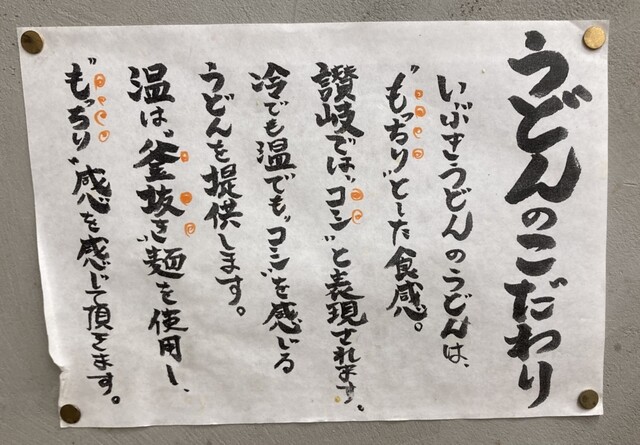 うどんのこだわり
いぶきうどんのうどんは、
"もっちり"とした食感。
讃岐では"コシ"と表現されます。
冷でも温でも"コシ"を感じる
うどんを提供します。
温は、"釜抜き"麺を使用し、
"もっちり"感を感じて頂きます。